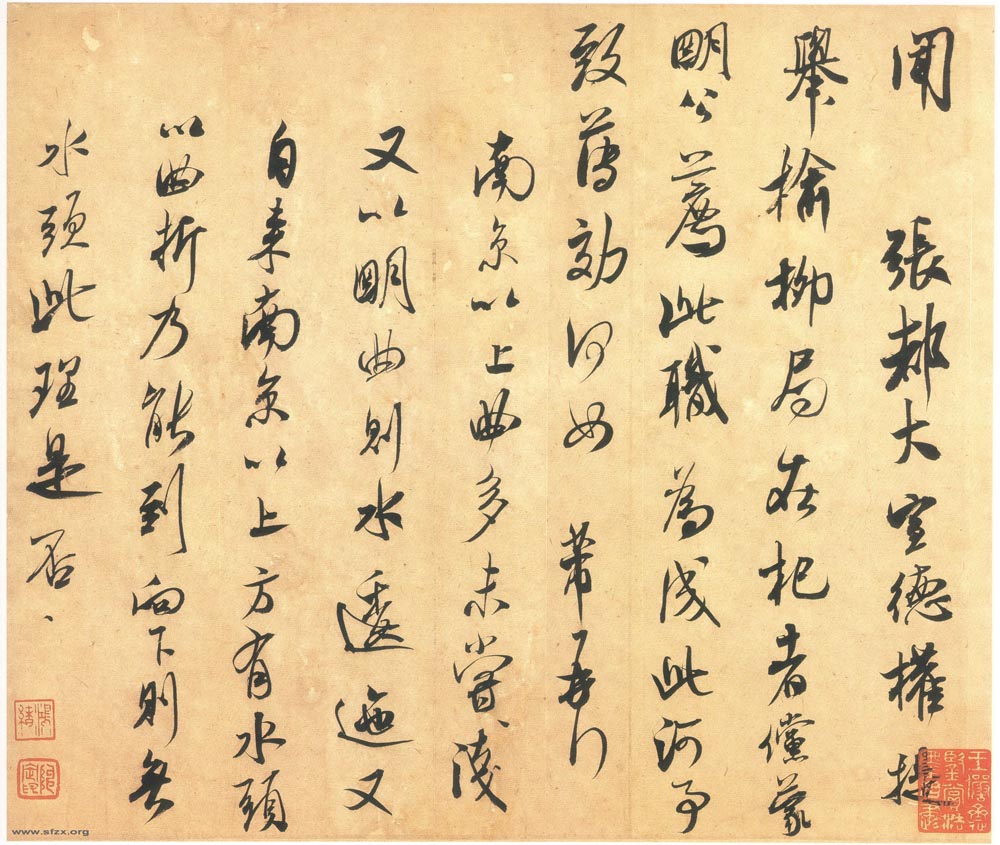 聞 張都大宣德權提
舉榆柳局在杞者儻蒙
明公薦此職為成此河事
致薄効何如 芾再行
南京以上曲多未嘗、淺
又以明曲則水逶迤又
自来南京以上方有水頭
以曲折乃能到向下則無
水頭此理是否、
www.sfzx.org